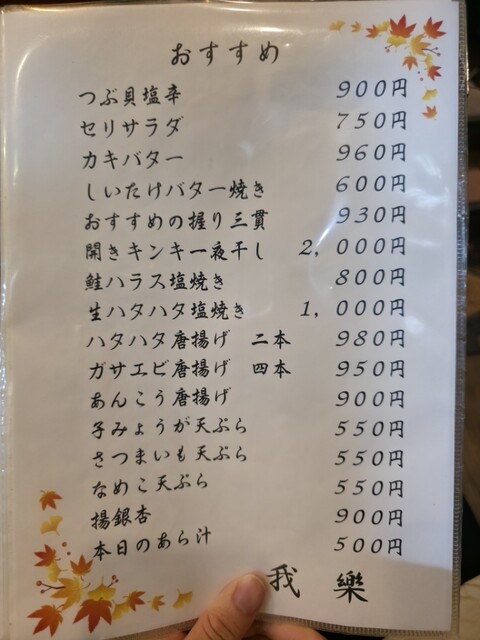 おすすめ
つぶ貝塩辛 900円
セリサラダ 750円
カキバター 960円
しいたけバター焼き 600円
おすすめの握り三貫 930円
開きキンキ一夜干し 2,000円
鮭ハラス塩焼き 800円
生ハタハタ塩焼き 1,000円
ハタハタ唐揚げ 二本 980円
ガサエビ唐揚げ 四本 950円
あんこう唐揚げ 900円
子みょうが天ぷら 550円
さつまいも天ぷら 550円
なめこ天ぷら 550円
揚銀杏 900円
本日のあら汁 500円
我 樂